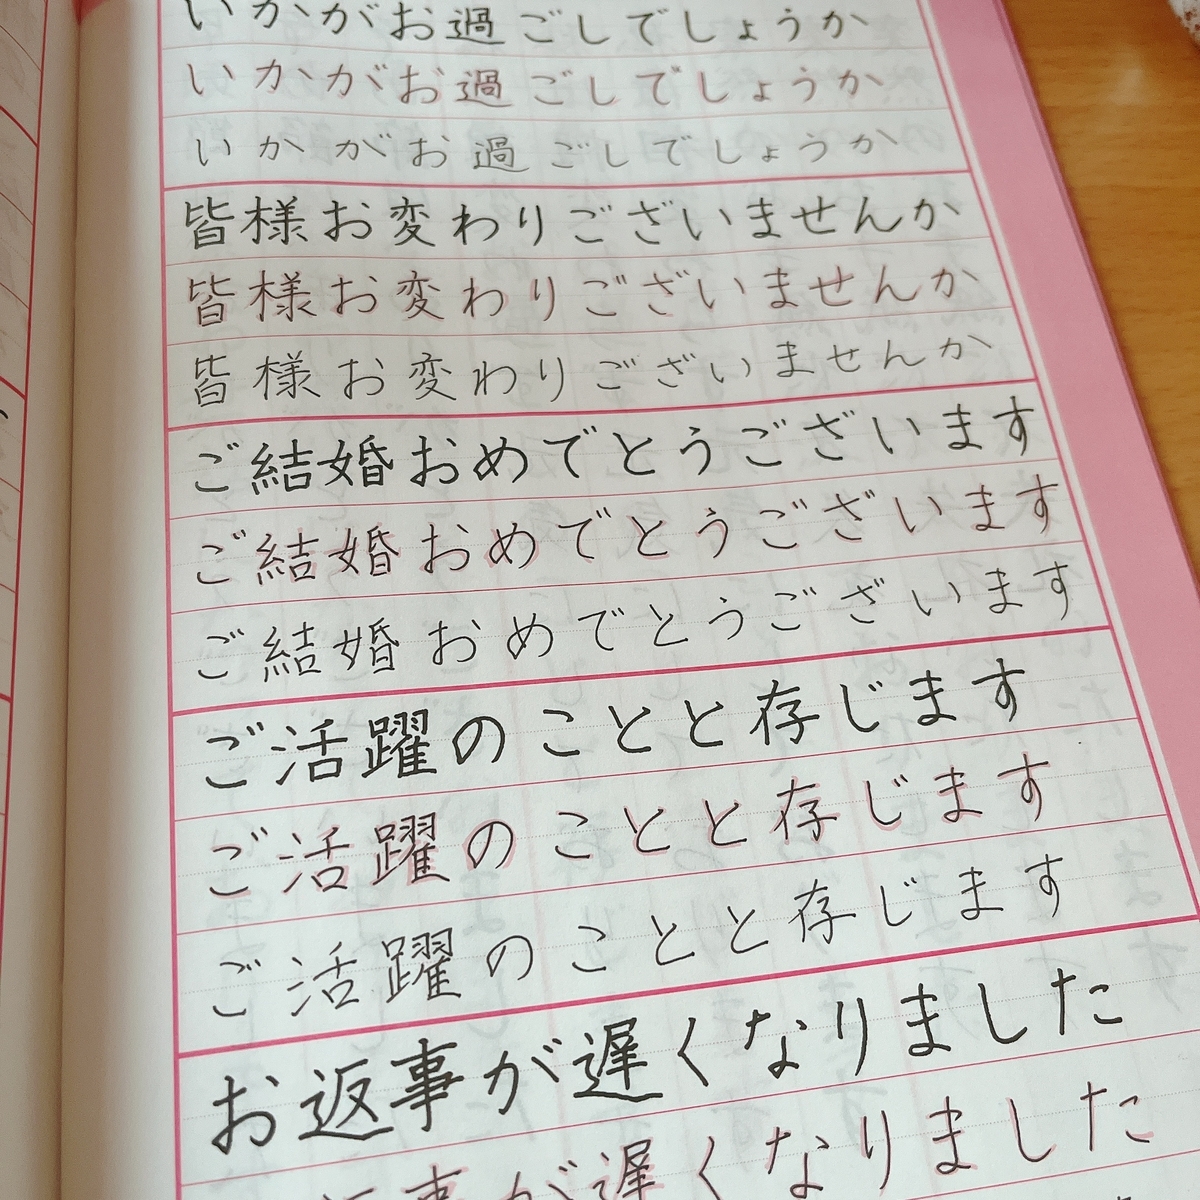 いかがお過ごしでしょうか
いかがお過ごしでしょうか
いかがお過ごしでしょうか
皆様お変わりございませんか
皆様お変わりございませんか
皆様お変わりございませんか
ご結婚おめでとうございます
ご結婚おめでとうございます
ご結婚おめでとうございます
ご活躍のことと存じます
ご活躍のことと存じます
ご活躍のことと存じます
お返事が遅くなりました
事が遅くなりました